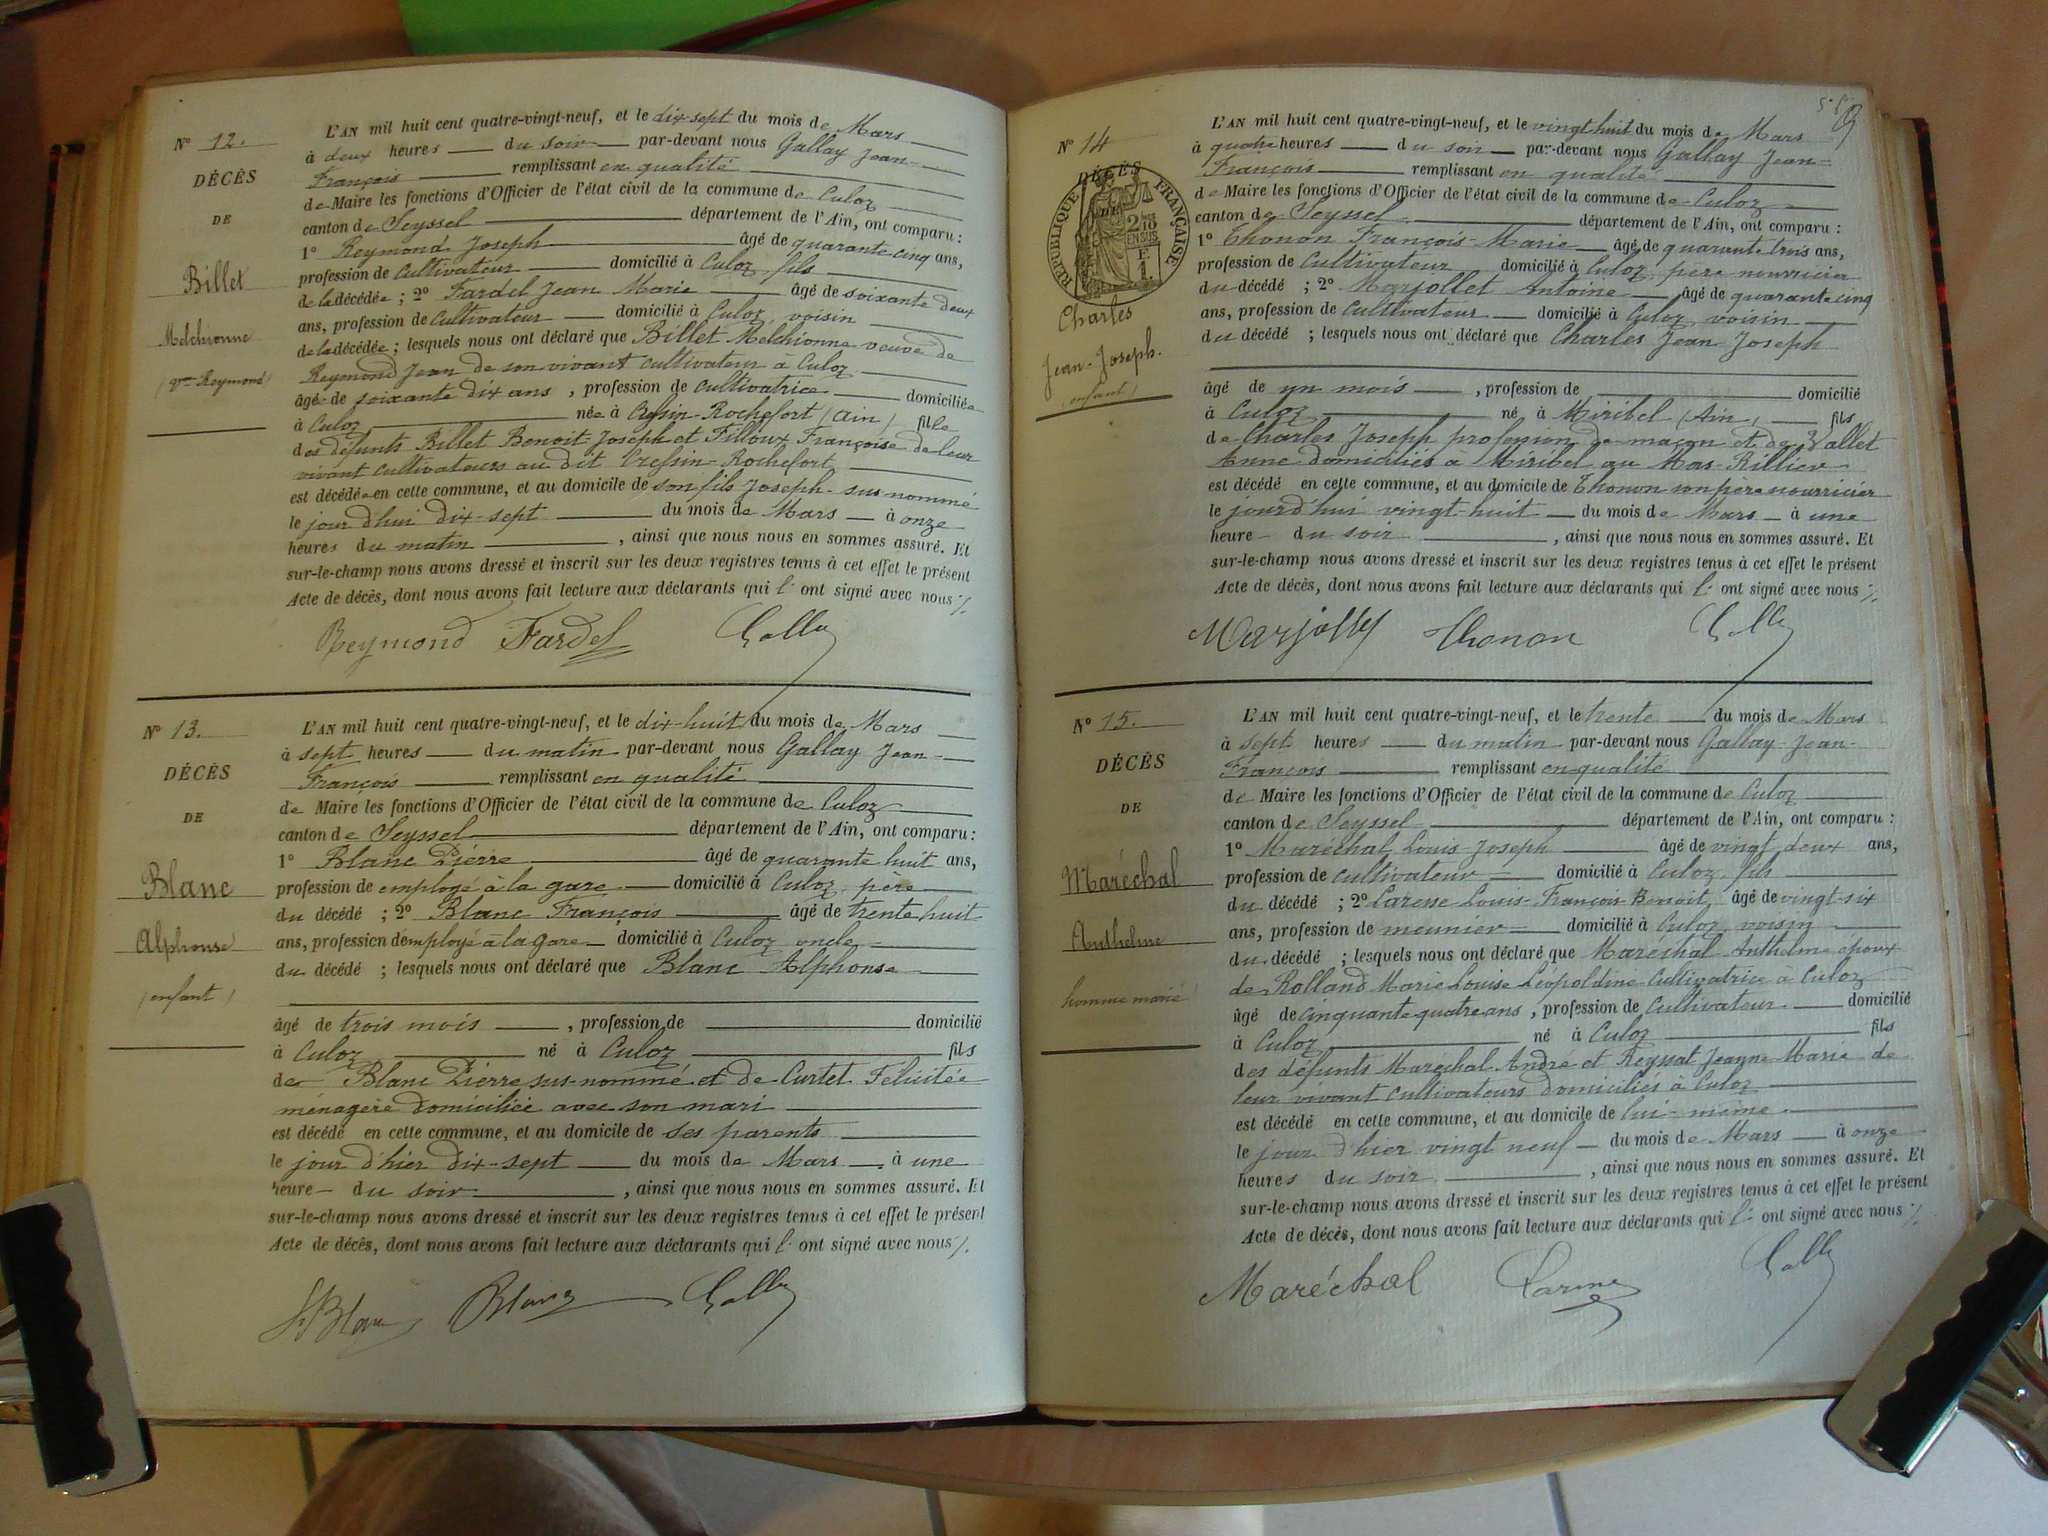 Nº 12.
DÉCÈS
DE
Billet
Melchionne
(vve Reymond)
L'AN mil huit cent quatre-vingt-neuf, et le dix-sept du mois de Mars
à deux heures du soir par-devant nous Gallay Jean-
François remplissant en qualité
de Maire les fonctions d'Officier de l'état civil de la commune de Culoz
canton de Seyssel département de l'Ain, ont comparu :
1º Reymond Joseph âgé de quarante-cinq ans,
profession de cultivateur domicilié à Culoz, fils
de la décédée ; 2º Fardel Jean Marie âgé de soixante deux
ans, profession de cultivateur domicilié à Culoz, voisin
de la décédée ; lesquels nous ont déclaré que Billet Melchionne veuve de
Reymond Jean de son vivant cultivateur à Culoz
âgée de soixante dix ans, profession de cultivatrice domiciliée
à Culoz née à Cressin-Rochefort (Ain) fille
des défunts Billet Benoit-Joseph et Filloux Françoise de leur
vivant cultivateurs au dit Cressin-Rochefort
est décédée en cette commune, et au domicile de son fils Joseph sus-nommé
le jour d'hui dix-sept du mois de Mars à onze
heures du matin, ainsi que nous nous en sommes assuré. Et
sur-le-champ nous avons dressé et inscrit sur les deux registres tenus à cet effet le présent
Acte de décès, dont nous avons fait lecture aux déclarants qui l' ont signé avec nous ./.
Reymond Fardel Gallay
Nº 13.
DÉCÈS
DE
Blanc
Alphonse
(enfant)
L'AN mil huit cent quatre-vingt-neuf, et le dix-huit du mois de Mars
à sept heures du matin par-devant nous Gallay Jean-
François remplissant en qualité
de Maire les fonctions d'Officier de l'état civil de la commune de Culoz
canton de Seyssel département de l'Ain, ont comparu :
1º Blanc Pierre âgé de quarante huit ans,
profession de employé à la gare domicilié à Culoz, père
du décédé ; 2º Blanc François âgé de trente huit
ans, profession demployé à la gare domicilié à Culoz oncle
du décédé ; lesquels nous ont déclaré que Blanc Alphonse
âgé de trois mois, profession de domicilié
à Culoz né à Culoz fils
de Blanc Pierre sus-nommé et de Curtet Félicitée
ménagère domiciliée avec son mari
est décédé en cette commune, et au domicile de ses parents
le jour d'hier dix-sept du mois de Mars à une
heure du soir, ainsi que nous nous en sommes assuré. Et
sur-le-champ nous avons dressé et inscrit sur les deux registres tenus à cet effet le présent
Acte de décès, dont nous avons fait lecture aux déclarants qui l' ont signé avec nous ./.
Blanc Blanc Gallay
Nº 14
DÉCÈS
DE
RÉPUBLIQUE FRANÇAISE
2/10 EN SUS
E
1
Charles
Jean-Joseph.
(enfant)
L'AN mil huit cent quatre-vingt-neuf, et le vingt huit du mois de Mars
à quatre heures du soir par-devant nous Gallay Jean-
François remplissant en qualité
de Maire les fonctions d'Officier de l'état civil de la commune de Culoz
canton de Seyssel département de l'Ain, ont comparu :
1º Thonon François-Marie âgé de quarante trois ans,
profession de cultivateur domicilié à Culoz père nourricier
du décédé ; 2º Marjollet Antoine âgé de quarante cinq
ans, profession de cultivateur domicilié à Culoz, voisin
du décédé ; lesquels nous ont déclaré que Charles Jean Joseph
âgé de un mois, profession de domicilié
à Culoz né à Miribel (Ain) fils
de Charles Joseph profession de maçon et de Vallet
Anne domiciliés à Miribel au Mas-Rillier
est décédé en cette commune, et au domicile de Thonon son père nourricier
le jourd'hui vingt-huit du mois de Mars à une
heure du soir, ainsi que nous nous en sommes assuré. Et
sur-le-champ nous avons dressé et inscrit sur les deux registres tenus à cet effet le présent
Acte de décès, dont nous avons fait lecture aux déclarants qui l' ont signé avec nous ./.
Marjollet Thonon Gallay
Nº 15.
DÉCÈS
DE
Maréchal
Anthelme
homme marié
L'AN mil huit cent quatre-vingt-neuf, et le trente du mois de Mars
à sept heures du matin par-devant nous Gallay Jean-
François remplissant en qualité
de Maire les fonctions d'Officier de l'état civil de la commune de Culoz
canton de Seyssel département de l'Ain, ont comparu :
1º Maréchal Louis-Joseph âgé de vingt deux ans,
profession de cultivateur domicilié à Culoz, fils
du décédé ; 2º Louis-François Benoit, âgé de vingt-six
ans, profession de meunier domicilié à Culoz, voisin
du décédé ; lesquels nous ont déclaré que Maréchal Anthelme époux
de Rolland Marie Louise Léopoldine cultivatrice à Culoz
âgé de cinquante quatre ans, profession de cultivateur domicilié
à Culoz né à Culoz fils
des défunts Maréchal André et Reynat Jeanne Marie de
leur vivant cultivateurs domiciliés à Culoz
est décédé en cette commune, et au domicile de lui-même
le jour d'hier vingt neuf du mois de Mars à onze
heures du soir, ainsi que nous nous en sommes assuré. Et
sur-le-champ nous avons dressé et inscrit sur les deux registres tenus à cet effet le présent
Acte de décès, dont nous avons fait lecture aux déclarants qui l' ont signé avec nous ./.
Maréchal Gallay